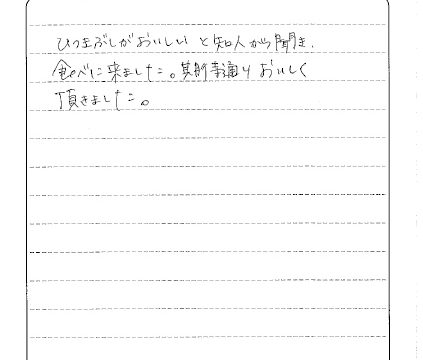 ひつまぶしがおいしいと知人から聞き、
食べに来ました。期待通りおいしく
頂きました。